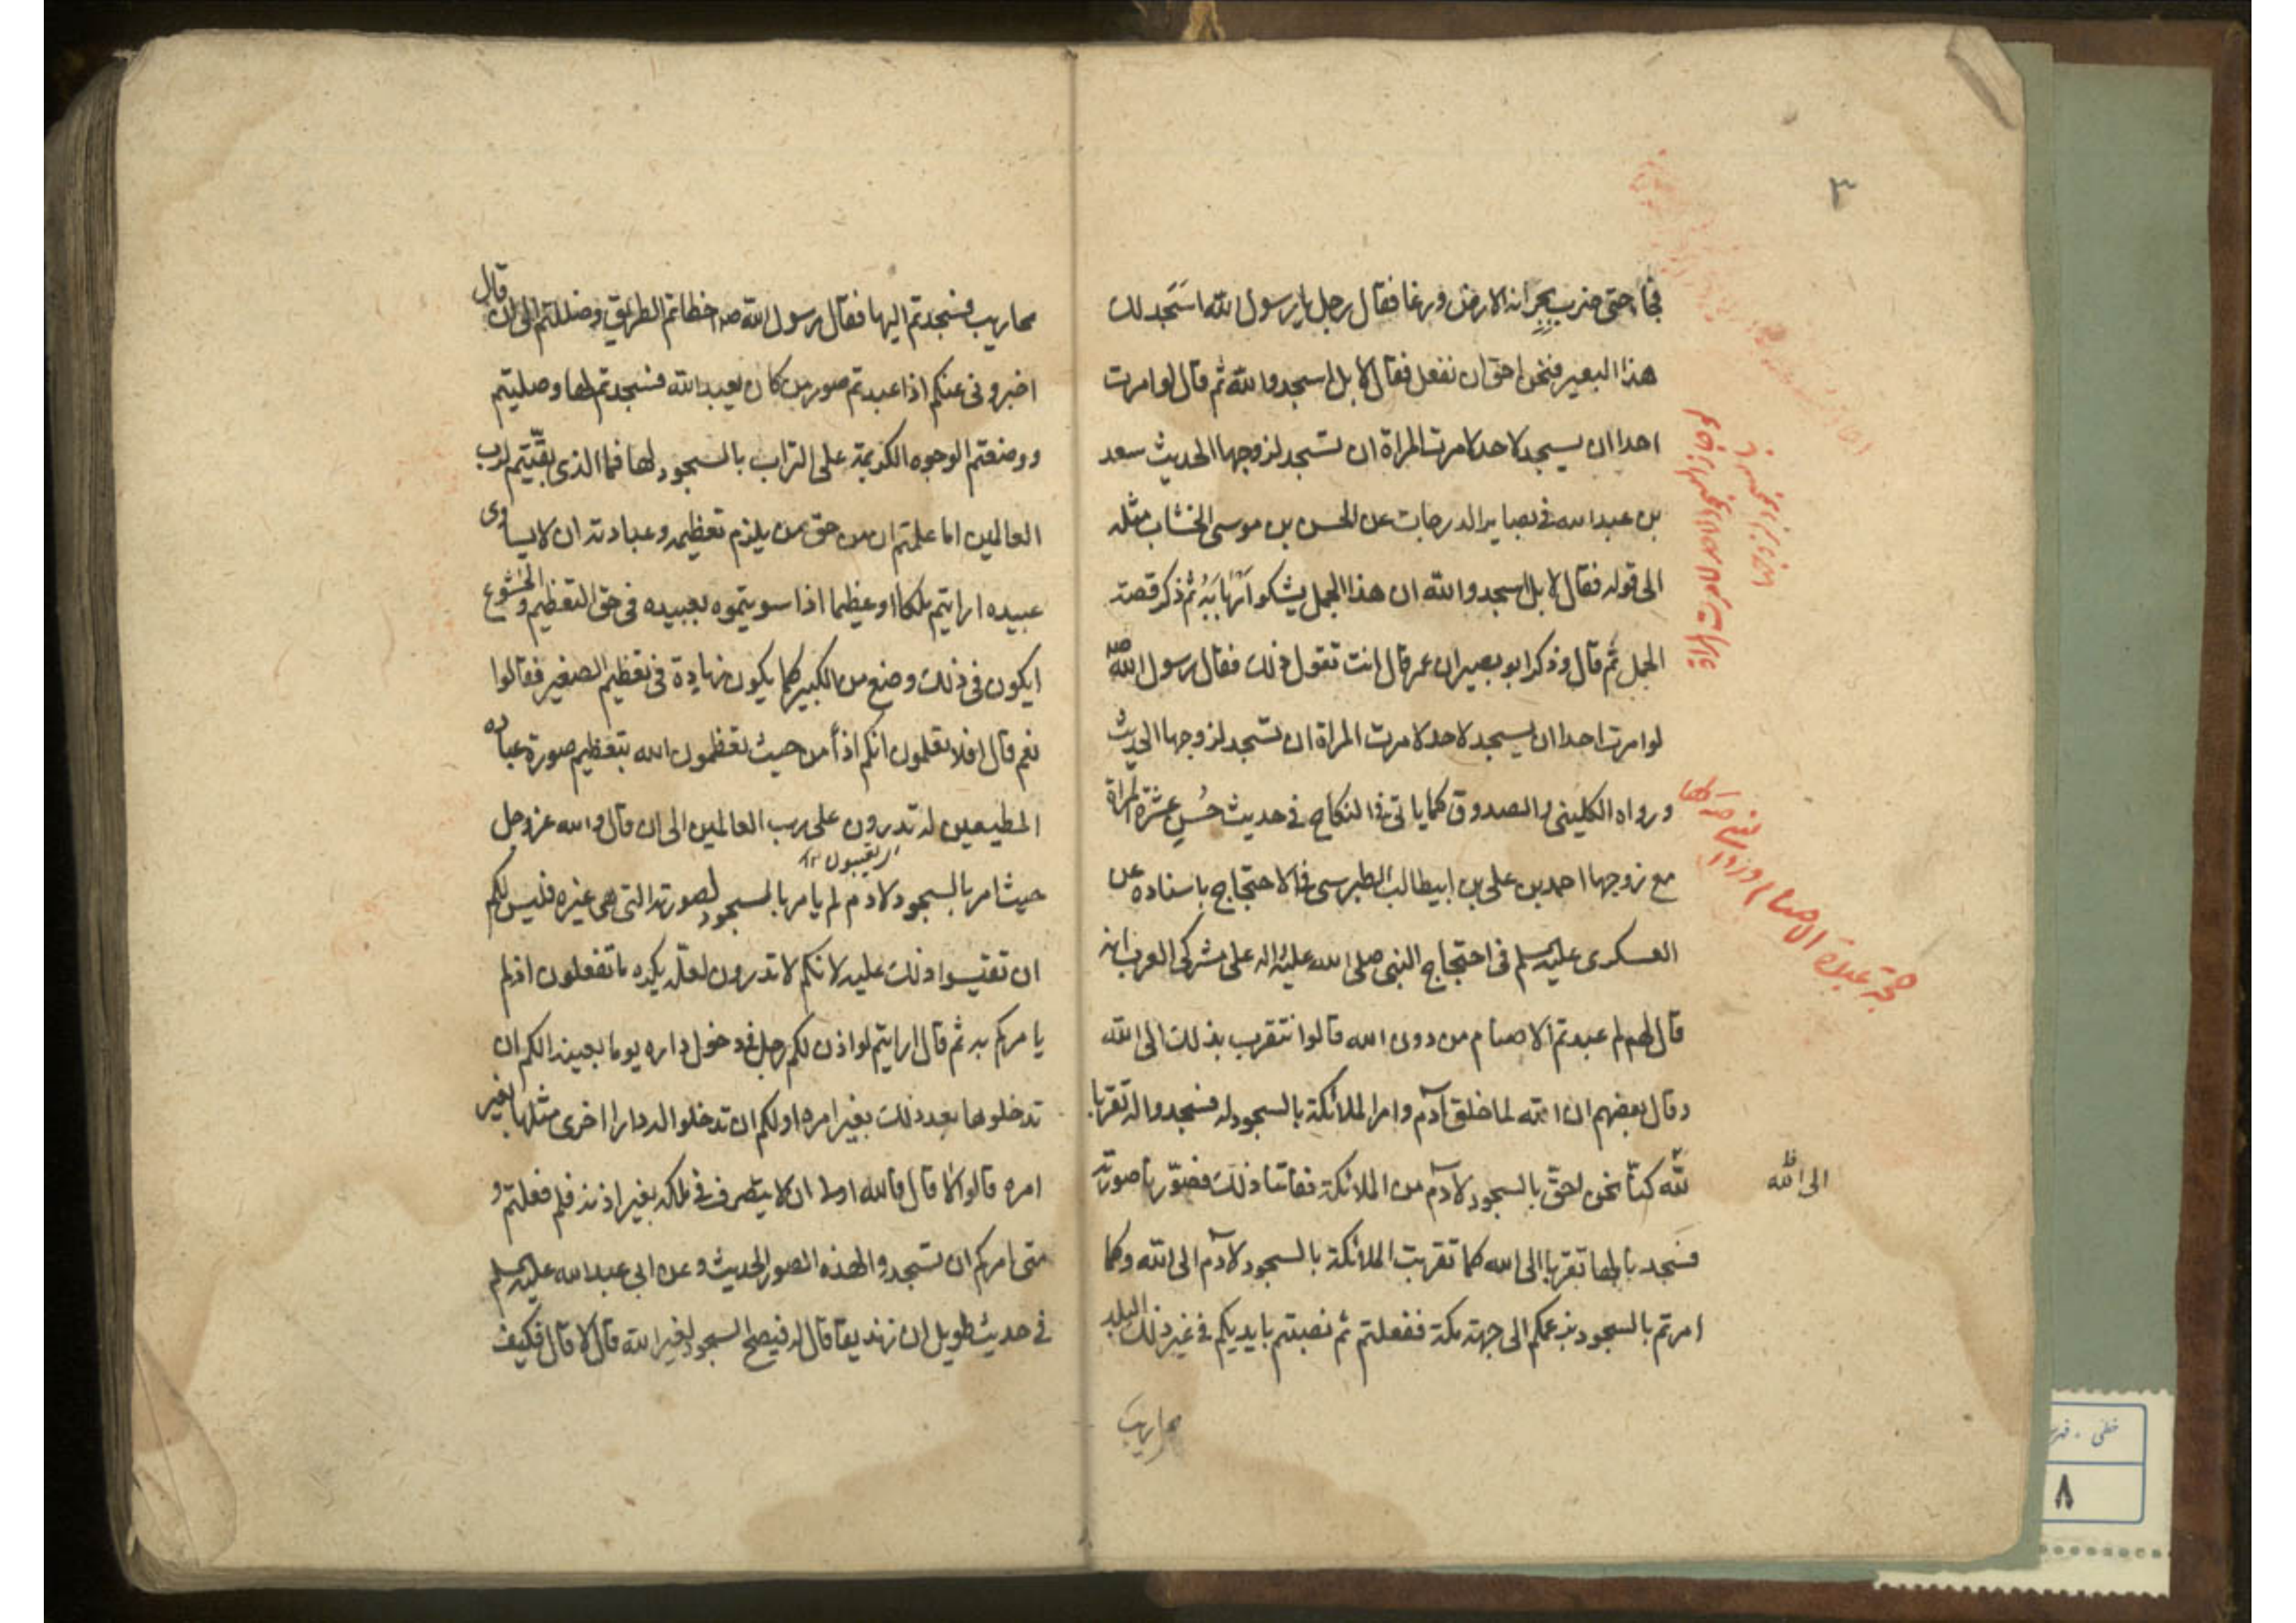 ٣
فجاء حتى ضرب بجرانه الارض ورغا فقال رجل يا رسول الله اسَجد لك
هذا البعير فنحن احق ان نفعل فقال لا بل اسجدوا لله ثم قال لو امرت
احدا ان يسجد لاحد لامرت المراة ان تسجد لزوجها الحديث سعد
بن عبد الله فى بصاير الدرجات عن الحسن بن موسى الخشاب مثله
الى قوله فقال لا بل اسجدوا لله ان هذا الجمل يشكو اَربابَهُ ثم ذكر قصة
الجمل ثم قال وذكر ابو بصير ان عمر قال انت تقول ذلك فقال رسول الله صه
لو امرت احدا ان يسجد لاحد لامرت المراة ان تسجد لزوجها الحديث
ورواه الكلينى والصدوق كما ياتى فى النكاح فى حديث حُسن عشرة المراة
مع زوجها احمد بن على بن ابيطالب الطبرسى فى الاحتجاج باسناده عن
العسكرى عليه السلم فى احتجاج النبى صلى الله عليه واله على مشركى العرب انه
قال لهم لم عبدتم الاصنام من دون الله قالوا نتقرب بذلك الى الله
وقال بعضهم ان الله لما خلق آدم وامر الملائكة بالسجود له فسجدوا له تقربا
لله كنا نحن احق بالسجود لآدم من الملائكة ففاتنا ذلك فصوّرنا صورته
فسَجدنا لها تقربا الى الله كما تقربت الملائكة بالسجود لآدم الى الله وكما
امرتم بالسجود بزعمكم الى جهة مكة ففعلتم ثم نصبتم بايديكم فى غير ذلك البلد
محاريب
الى الله ظ
حجة عبدة الاصنام
محاريب فسجدتم اليها فقال رسول الله صه اخطاتم الطريق وضللتم الى ان قال
اخبرونى عنكم اذا عبدتم صور من كان يعبد الله فسجدتم لها وصليتم
ووضعتم الوجوه الكريمة على التراب بالسجود لها فما الذى بقّيتم لرب
العالمين اما علمتم ان من حق من يلزم تعظيمه وعبادته ان لا يساوى
عبيده ارايتم ملكا او عظيما اذا سويتموه بعبيده فى حق التعظيم والخشوع
ايكون فى ذلك وضع من الكبير كما يكون زيادة فى تعظيم الصغير فقالوا
نعم قال افلا تعلمون انكم اذاً من حيث تعظمون الله بتعظيم صورة عباده
المطيعين له تدرون على رب العالمين الى ان قال والله عز وجل
حيث امر بالسجود لادم لم يامر بالسجود لصورته التى هى غيره فليس لكم
ان تقيسوا ذلك عليه لانكم لا تدرون لعلّه يكره ما تفعلون اذ لم
يامركم به ثم قال ارايتم لو اذن لكم رجل فى دخول داره يوما بعينه الكم ان
تدخلوها بعد ذلك بغير امره او لكم ان تدخلوا له دارا اخرى مثلها بغير
امره قالوا لا قال فالله اولى ان لا يتصرف فى ملكه بغير اذنه فلم فعلتم و
متى امركم ان تسجدوا لهذه الصور الحديث وعن ابى عبد الله عليه السلم
فى حديث طويل ان زنديقا قال له فيصح السجود لغير الله قال لا قال فكيف
خطى
٨